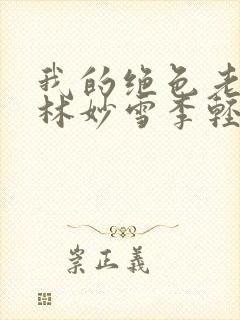 我的绝色老
林妙雪季轻
崇正義